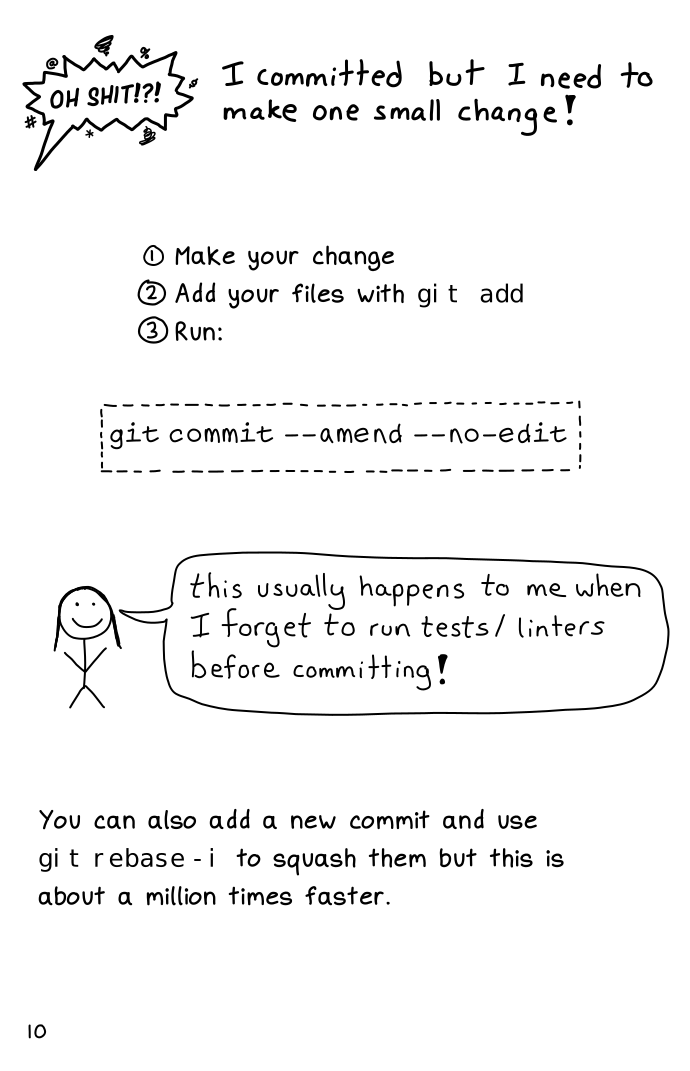 OH SHIT!?!
I committed but I need to
make one small change!
① Make your change
② Add your files with git add
③ Run:
git commit --amend --no-edit
this usually happens to me when
I forget to run tests/linters
before committing!
You can also add a new commit and use
git rebase -i to squash them but this is
about a million times faster.
10